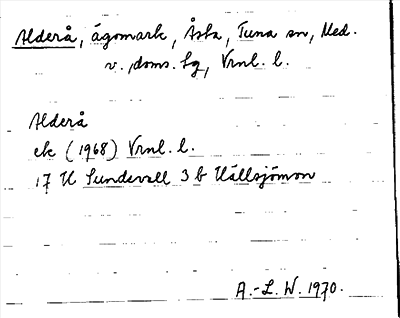 Alderå, ägomark, Åsta, Tuna sn, Med.
v. doms. lg, Vrnl. l.
Alderå
ek (1968) Vrnl. l.
17 H Sundsvall 3 b Hällsjömon
A.-L. W. 1970.